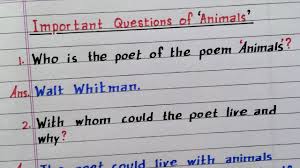 Important Questions of 'Animals'
1. Who is the poet of the poem 'Animals'?
Ans. Walt Whitman.
2. With whom could the poet live and
why?
The poet could live with animals